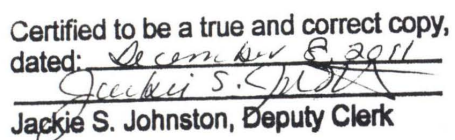 Certified to be a true and correct copy,
dated: December 8 2011
Jackie S. Johnston
Jackie S. Johnston, Deputy Clerk